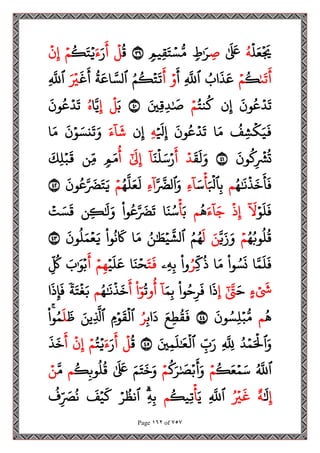 يَجْعَلْهُ عَلَىٰ صِرَٰطٍ مُّسْتَقِيمٍ ٣٩ قُلْ أَرَءَيْتَكُمْ إِنْ
أَتَىٰكُمْ عَذَابُ ٱللَّهِ أَوْ أَتَتْكُمُ ٱلسَّاعَةُ أَغَيْرَ ٱللَّهِ
تَدْعُونَ إِن كُنتُمْ صَٰدِقِينَ ٤٠ بَلْ إِيَّاهُ تَدْعُونَ
فَيَكْشِفُ مَا تَدْعُونَ إِلَيْهِ إِن شَآءَ وَتَنسَوْنَ مَا
تُشْرِكُونَ ٤١ وَلَقَدْ أَرْسَلْنَآ إِلَىٰٓ أُمَمٍ مِّن قَبْلِكَ
فَأَخَذْنَٰهُم بِٱلْبَأْسَآءِ وَٱلضَّرَّآءِ لَعَلَّهُمْ يَتَضَرَّعُونَ ٤٢
فَلَوْلَآ إِذْ جَآءَهُم بَأْسُنَا تَضَرَّعُوا۟ وَلَٰكِن قَسَتْ
قُلُوبُهُمْ وَزَيَّنَ لَهُمُ ٱلشَّيْطَٰنُ مَا كَانُوا۟ يَعْمَلُونَ ٤٣
فَلَمَّا نَسُوا۟ مَا ذُكِّرُوا۟ بِهِۦ فَتَحْنَا عَلَيْهِمْ أَبْوَٰبَ كُلِّ
شَىْءٍ حَتَّىٰٓ إِذَا فَرِحُوا۟ بِمَآ أُوتُوٓا۟ أَخَذْنَٰهُم بَغْتَةً فَإِذَا
هُم مُّبْلِسُونَ ٤٤ فَقُطِعَ دَابِرُ ٱلْقَوْمِ ٱلَّذِينَ ظَلَمُوا۟ۚ
وَٱلْحَمْدُ لِلَّهِ رَبِّ ٱلْعَٰلَمِينَ ٤٥ قُلْ أَرَءَيْتُمْ إِنْ أَخَذَ
ٱللَّهُ سَمْعَكُمْ وَأَبْصَٰرَكُمْ وَخَتَمَ عَلَىٰ قُلُوبِكُم مَّنْ
إِلَٰهٌ غَيْرُ ٱللَّهِ يَأْتِيكُم بِهِ ۗ ٱنظُرْ كَيْفَ نُصَرِّفُ
Page ١٦٢ of ٧٥٧